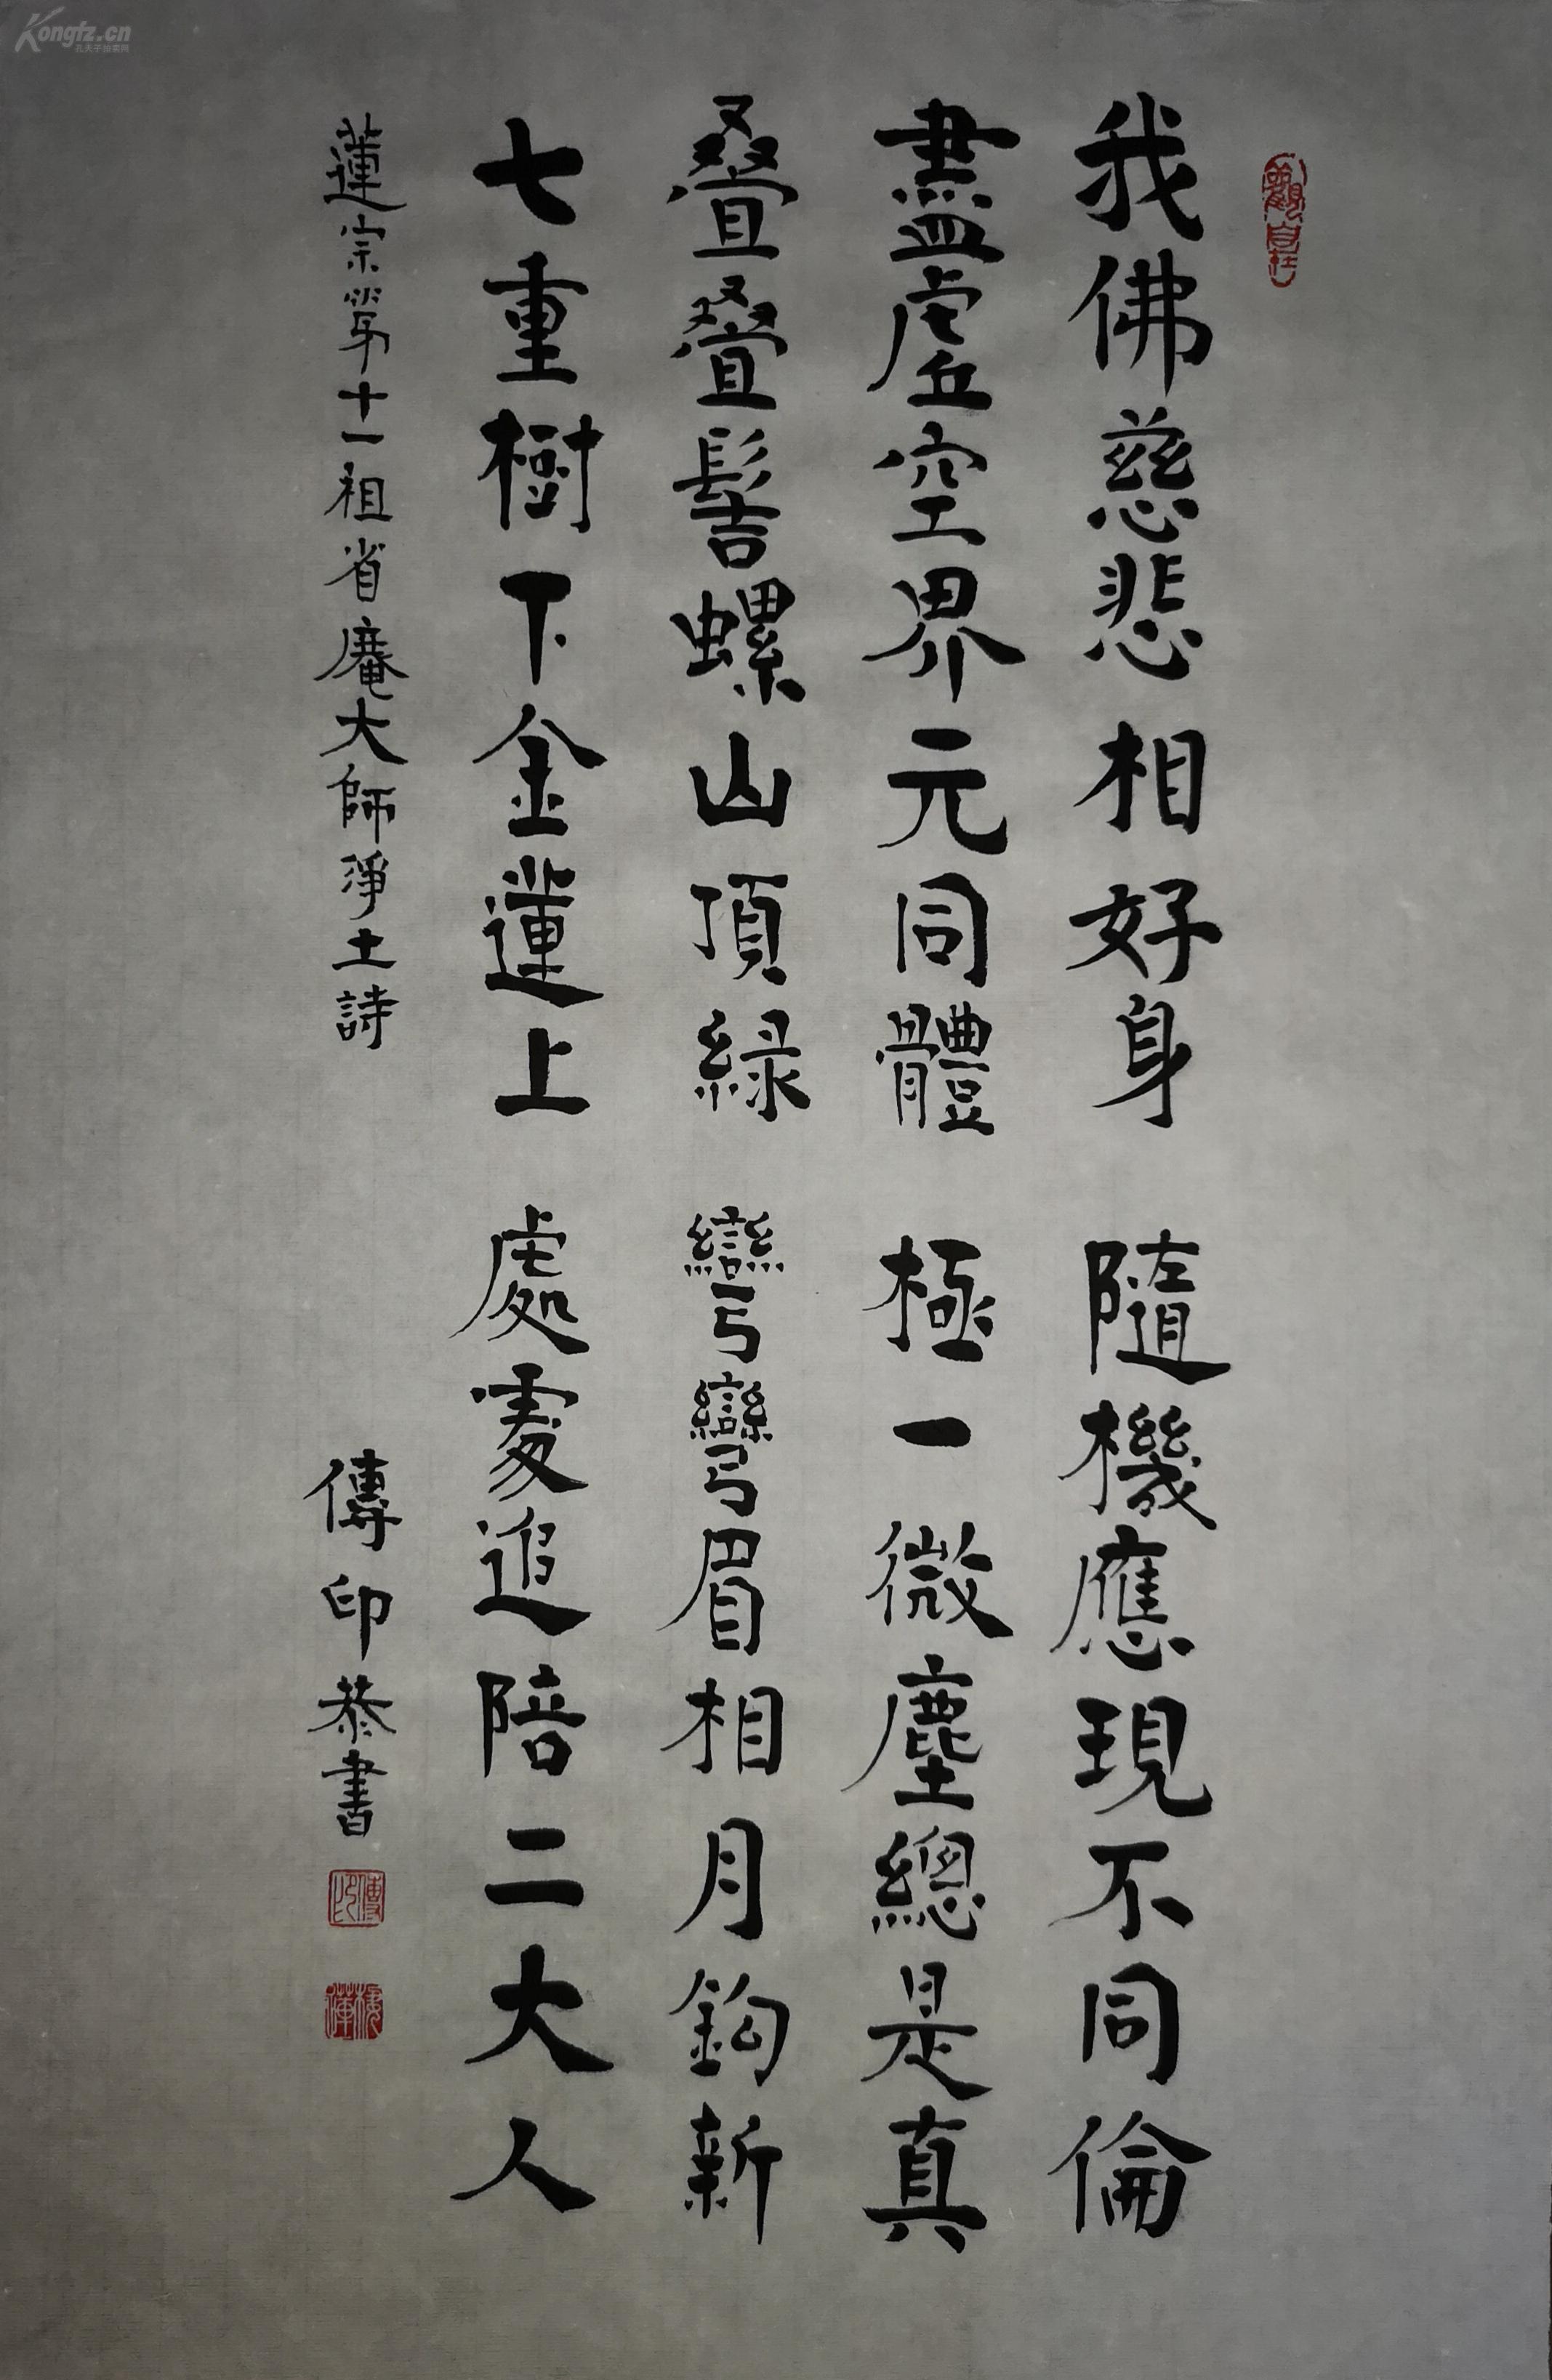 觀自在
我佛慈悲相好身 隨機應現不同倫
盡虛空界元同體 極一微塵總是真
叠叠髻螺山頂緑 彎彎眉相月鈎新
七重樹下金蓮上 處處追陪二大人
蓮宗第十一祖省庵大師淨土詩
傳印恭書
傳印
樓蓮
Kongfz.cn
孔夫子旧书网